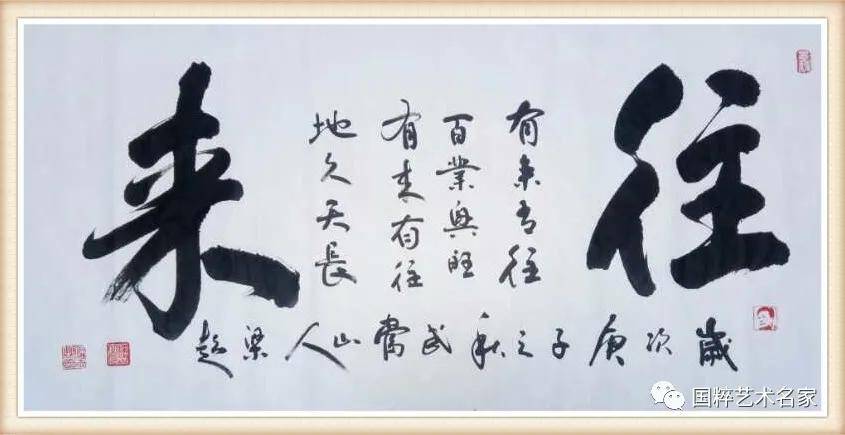 往
有来有往
百業興旺
有来有往
地久天長
来
歲次庚子之秋武當山人梁
国粹艺术名家